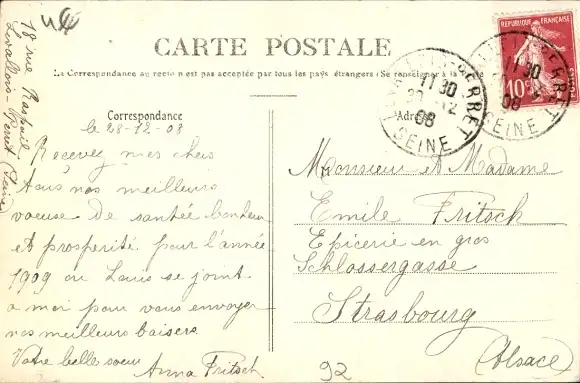 18 rue Raspail
Levallois-Perret (Seine)
CARTE POSTALE
La Correspondance au recto n'est pas acceptée par tous les pays étrangers (Se renseigner à la Poste)
REPUBLIQUE FRANÇAISE
10
LEVALLOIS-PERRET
11 30
12
08
SEINE
Correspondance
le 28-12-08
Recevez mes chers
tous nos meilleurs
voeux de santée bonheur
et prosperité pour l'année
1909 ou Louis se joint
a moi pour vous envoyer
nos meilleurs baisers
Votre belle soeur
Anna Fritsch
Adresse
Monsieur et Madame
Emile Fritsch
Epicerie en gros
Schlossergasse
Strasbourg
(Alsace)
92